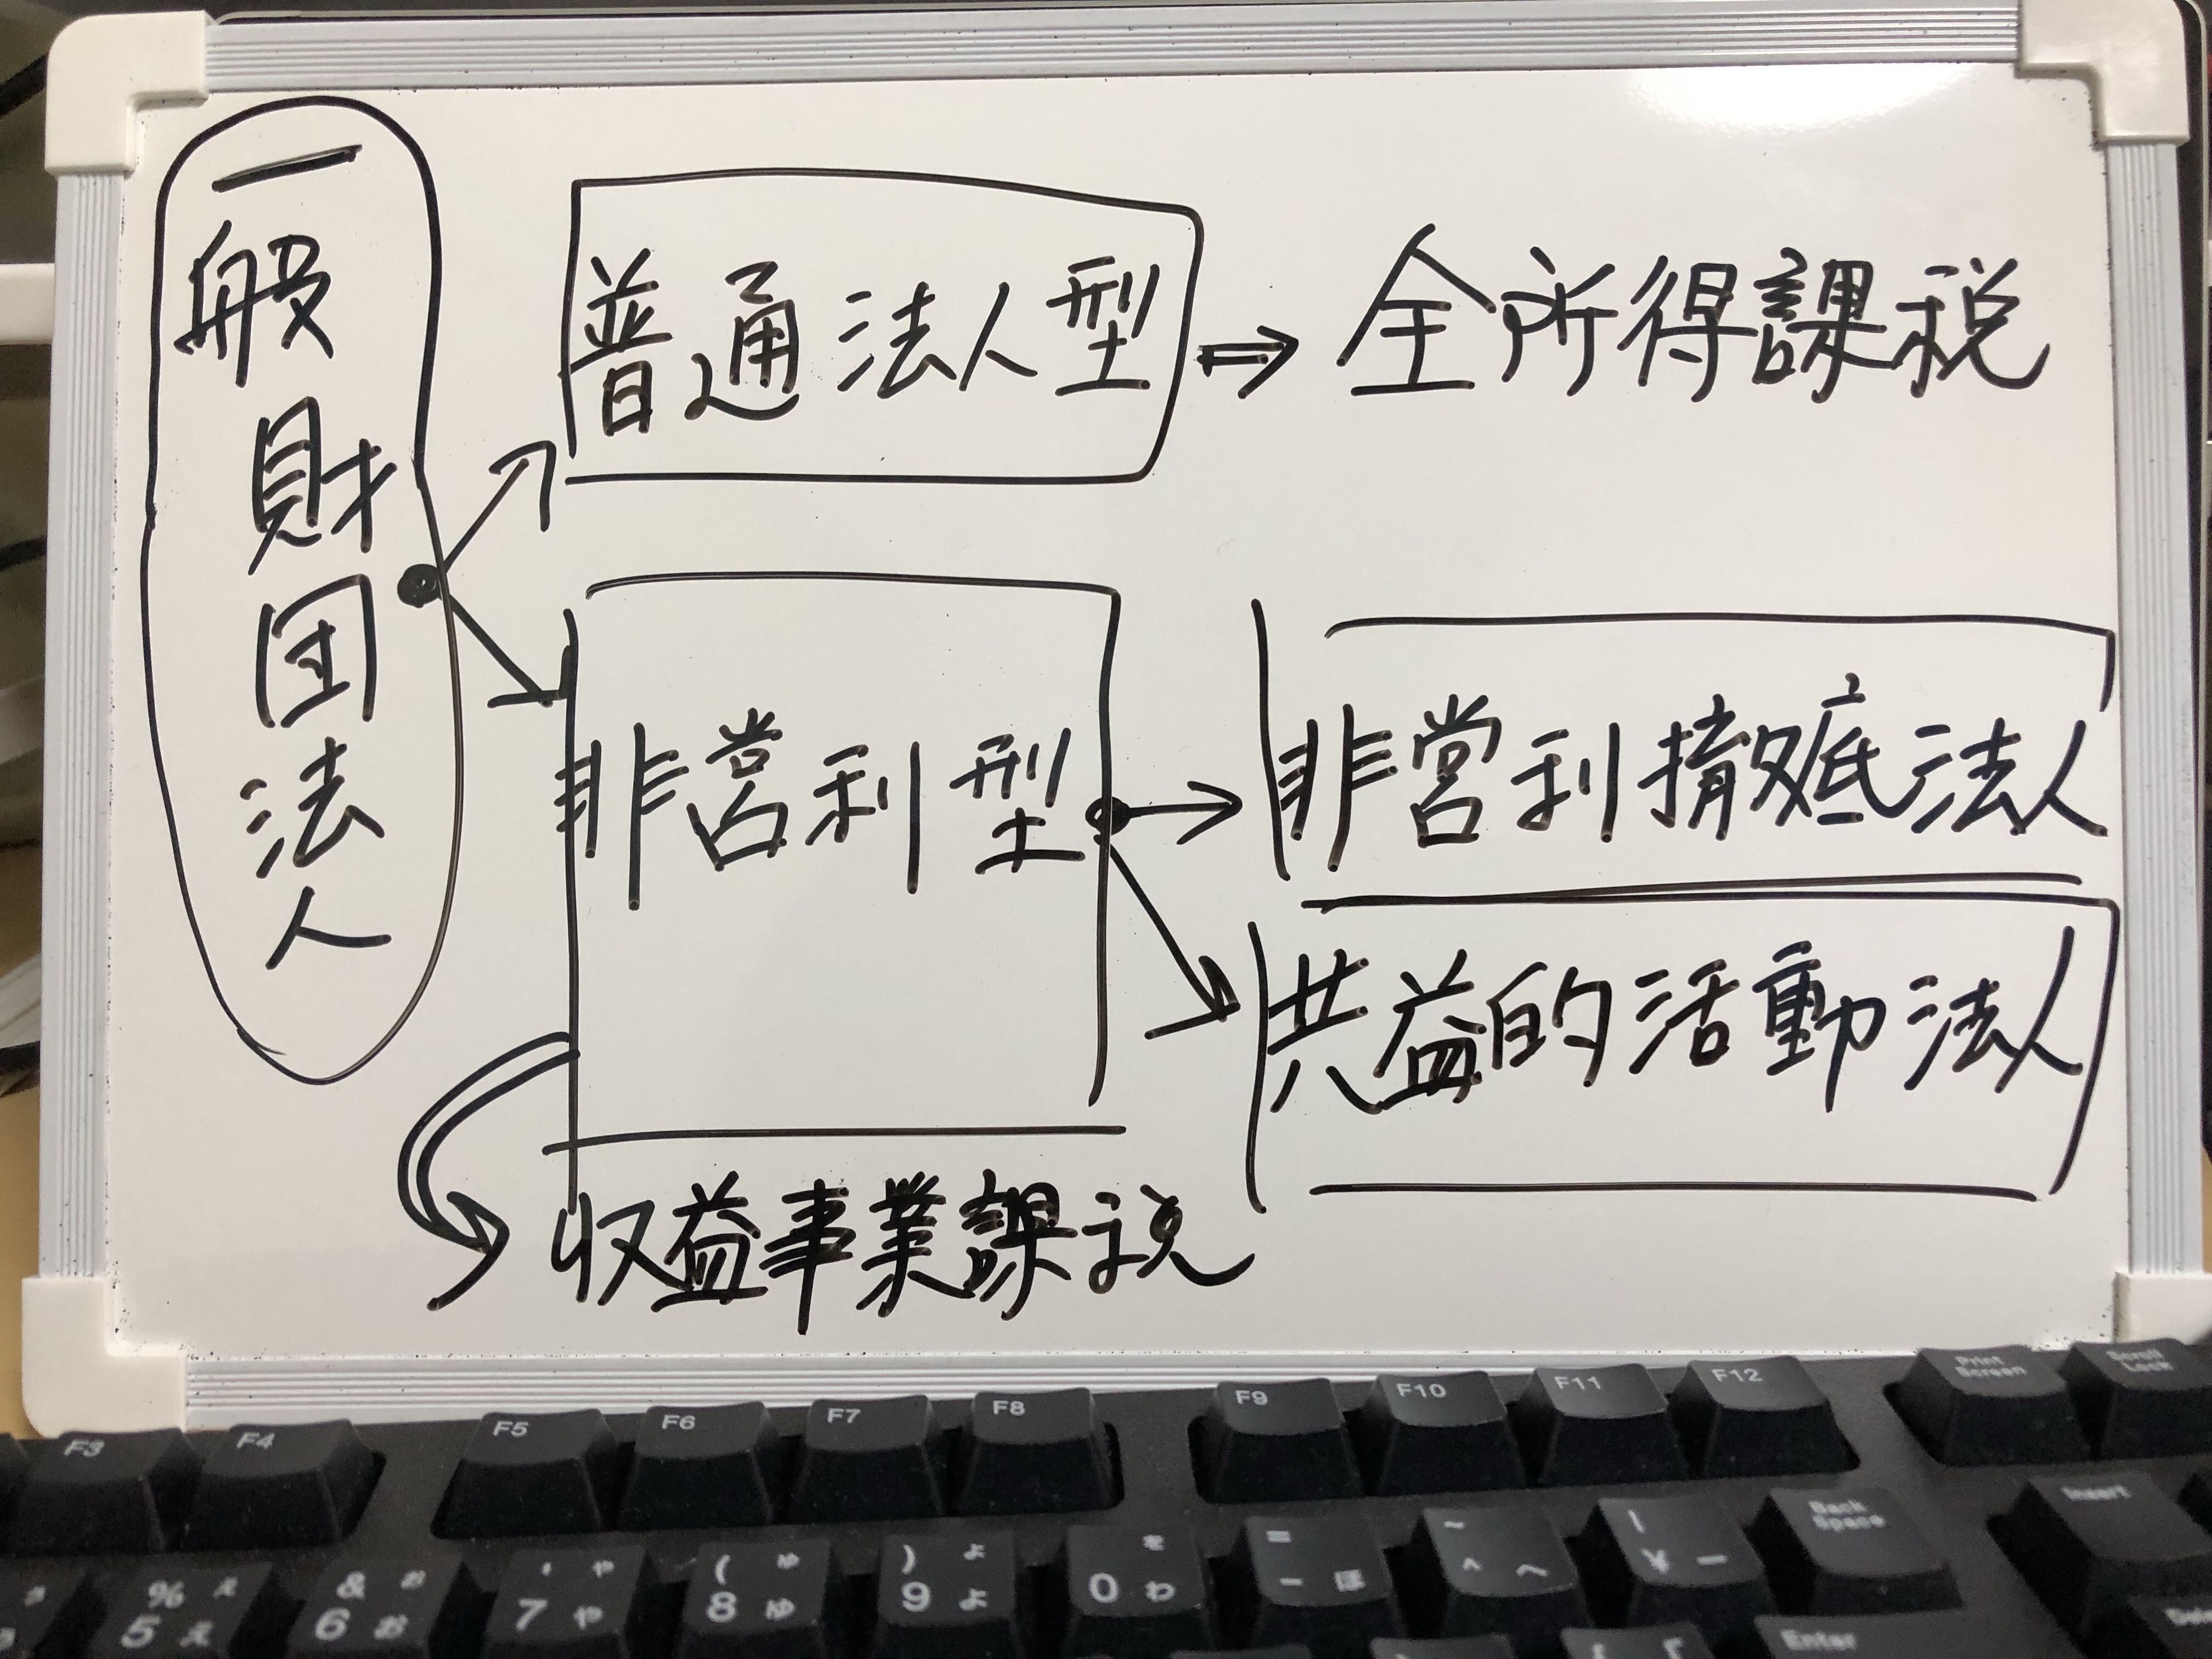 一般財団法人
普通法人型 ⇒ 全所得課税
非営利型
非営利徹底法人
共益的活動法人
収益事業課税
F3 F4 F5 F6 F7 F8 F9 F10 F11 F12 Print Screen Scroll Lock
% え 5 え
& お 6 お
' や 7 や
( ゆ 8 ゆ
) よ 9 よ
を 0 わ
= - ほ
~ ^ へ
| ¥ ー
Back Space
Insert
Enter